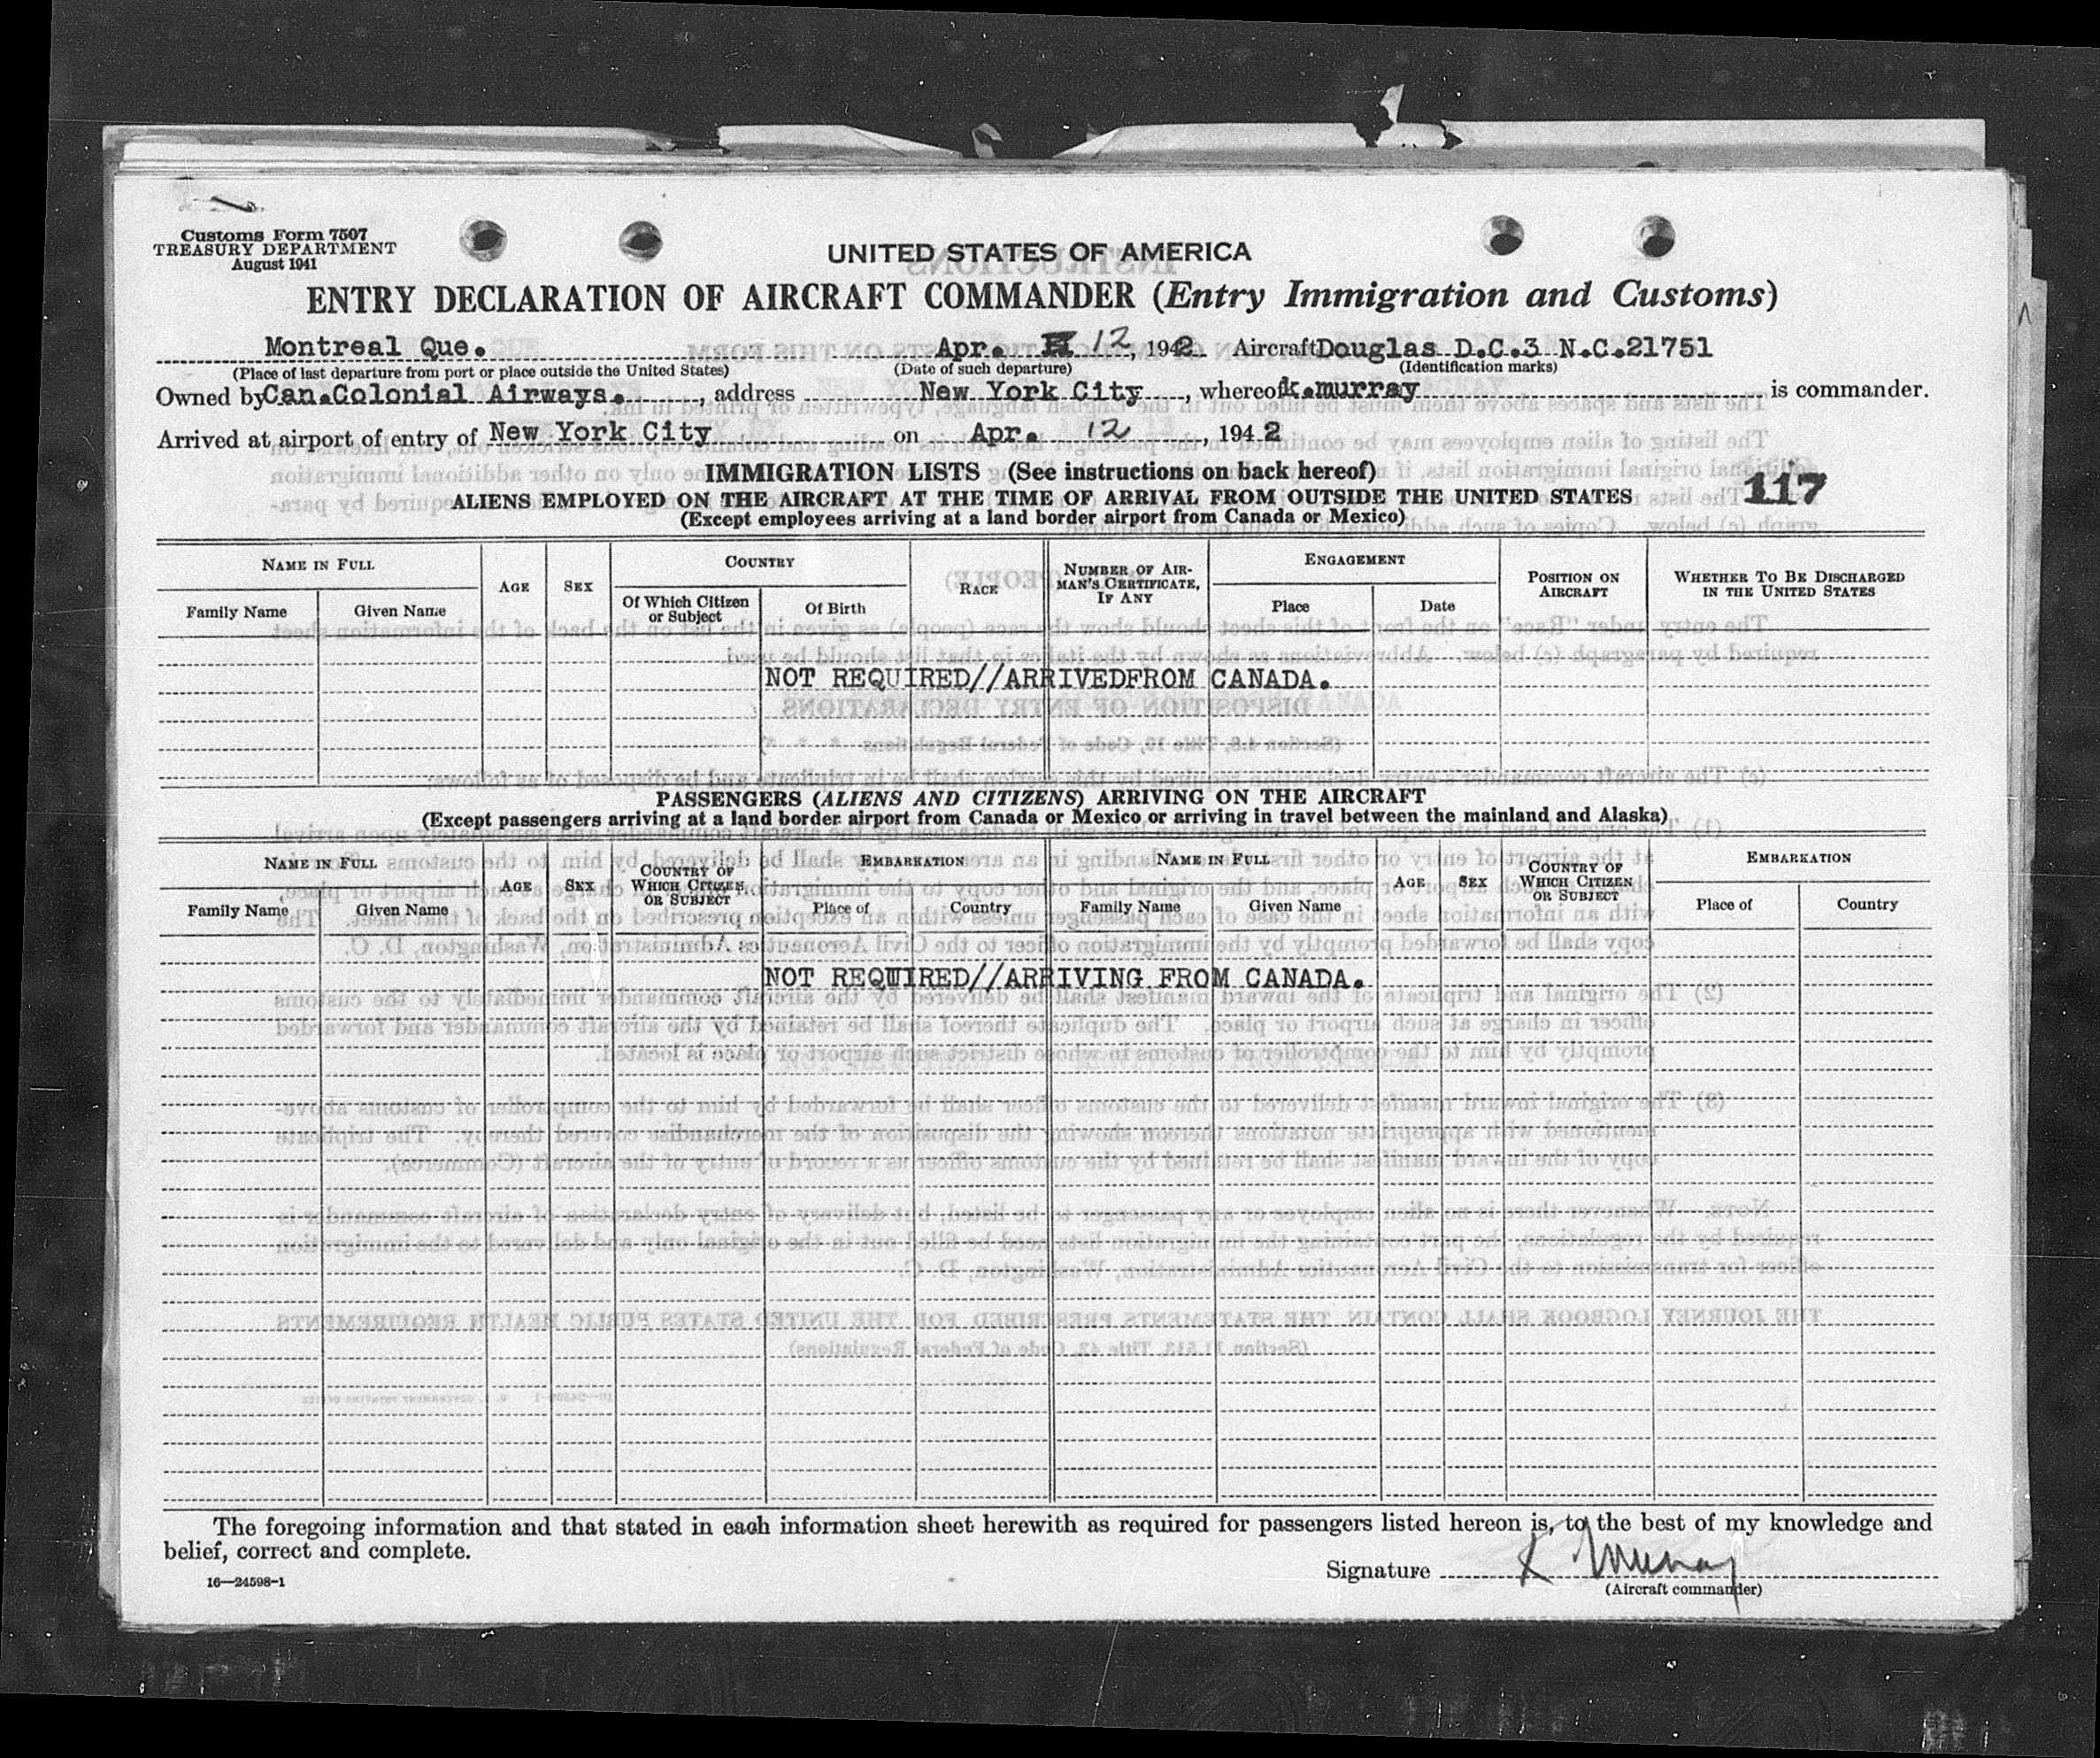 Customs Form 7507
TREASURY DEPARTMENT
August 1941
UNITED STATES OF AMERICA
ENTRY DECLARATION OF AIRCRAFT COMMANDER (Entry Immigration and Customs)
Montreal Que. Apr. 12, 1942 Aircraft Douglas D.C.3 N.C.21751
(Place of last departure from port or place outside the United States) (Date of such departure) (Identification marks)
Owned by Can.Colonial Airways., address New York City, whereof k.murray is commander.
Arrived at airport of entry of New York City on Apr. 12, 1942
IMMIGRATION LISTS (See instructions on back hereof)
117
ALIENS EMPLOYED ON THE AIRCRAFT AT THE TIME OF ARRIVAL FROM OUTSIDE THE UNITED STATES
(Except employees arriving at a land border airport from Canada or Mexico)
NAME IN FULL AGE SEX COUNTRY RACE NUMBER OF AIRMAN'S CERTIFICATE, IF ANY ENGAGEMENT POSITION ON AIRCRAFT WHETHER TO BE DISCHARGED IN THE UNITED STATES
Family Name Given Name Of Which Citizen or Subject Of Birth Place Date
NOT REQUIRED//ARRIVEDFROM CANADA.
PASSENGERS (ALIENS AND CITIZENS) ARRIVING ON THE AIRCRAFT
(Except passengers arriving at a land border airport from Canada or Mexico or arriving in travel between the mainland and Alaska)
NAME IN FULL AGE SEX COUNTRY OF WHICH CITIZEN OR SUBJECT EMBARKATION NAME IN FULL AGE SEX COUNTRY OF WHICH CITIZEN OR SUBJECT EMBARKATION
Family Name Given Name Place of Country Family Name Given Name Place of Country
NOT REQUIRED//ARRIVING FROM CANADA.
The foregoing information and that stated in each information sheet herewith as required for passengers listed hereon is, to the best of my knowledge and
belief, correct and complete.
Signature K Murray
(Aircraft commander)
16—24598-1